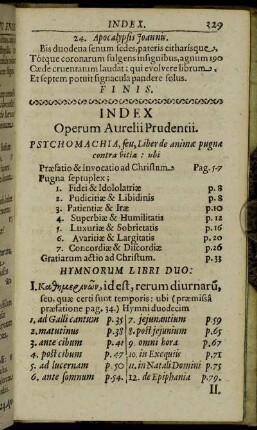 INDEX. 329
24. Apocalypsis Joannis.
Bis duodena senum sedes, pateris citharisque,
Totque coronarum fulgens insignibus, agnum 190
Cæde cruentatum laudat; qui evolvere librum,
Et septem potuit signacula pandere solus.
FINIS.
INDEX
Operum Aurelii Prudentii.
PSYCHOMACHIA, seu, Liber de animæ pugna
contra vitia: ubi
Præfatio & Invocatio ad Christum. Pag. 5.7
Pugna septuplex;
1. Fidei & Idololatriæ p. 8
2. Pudicitiæ & Libidinis p. 8
3. Patientiæ & Iræ p. 10
4. Superbiæ & Humilitatis p. 12
5. Luxuriæ & Sobrietatis p. 16
6. Avaritiæ & Largitatis p. 20
7. Concordiæ & Discordiæ p. 26
Gratiarum actio ad Christum. p. 33
HYMNORUM LIBRI DUO:
I. Καθημερινῶν, id est, rerum diurnarū,
seu, quæ certi sunt temporis: ubi (præmissâ
præfatione pag. 34.) Hymni duodecim
1. ad Galli cantum p. 35 7. jejunantium p. 59
2. matutinus p. 38 8. post jejunium p. 65
3. ante cibum p. 41 9. omni hora p. 67
4. post cibum p. 47 10. in Exequiis p. 71
5. ad lucernam p. 50 11. in Natali Domini p. 75
6. ante somnum p. 54. 12. de Epiphania p. 79.
II.